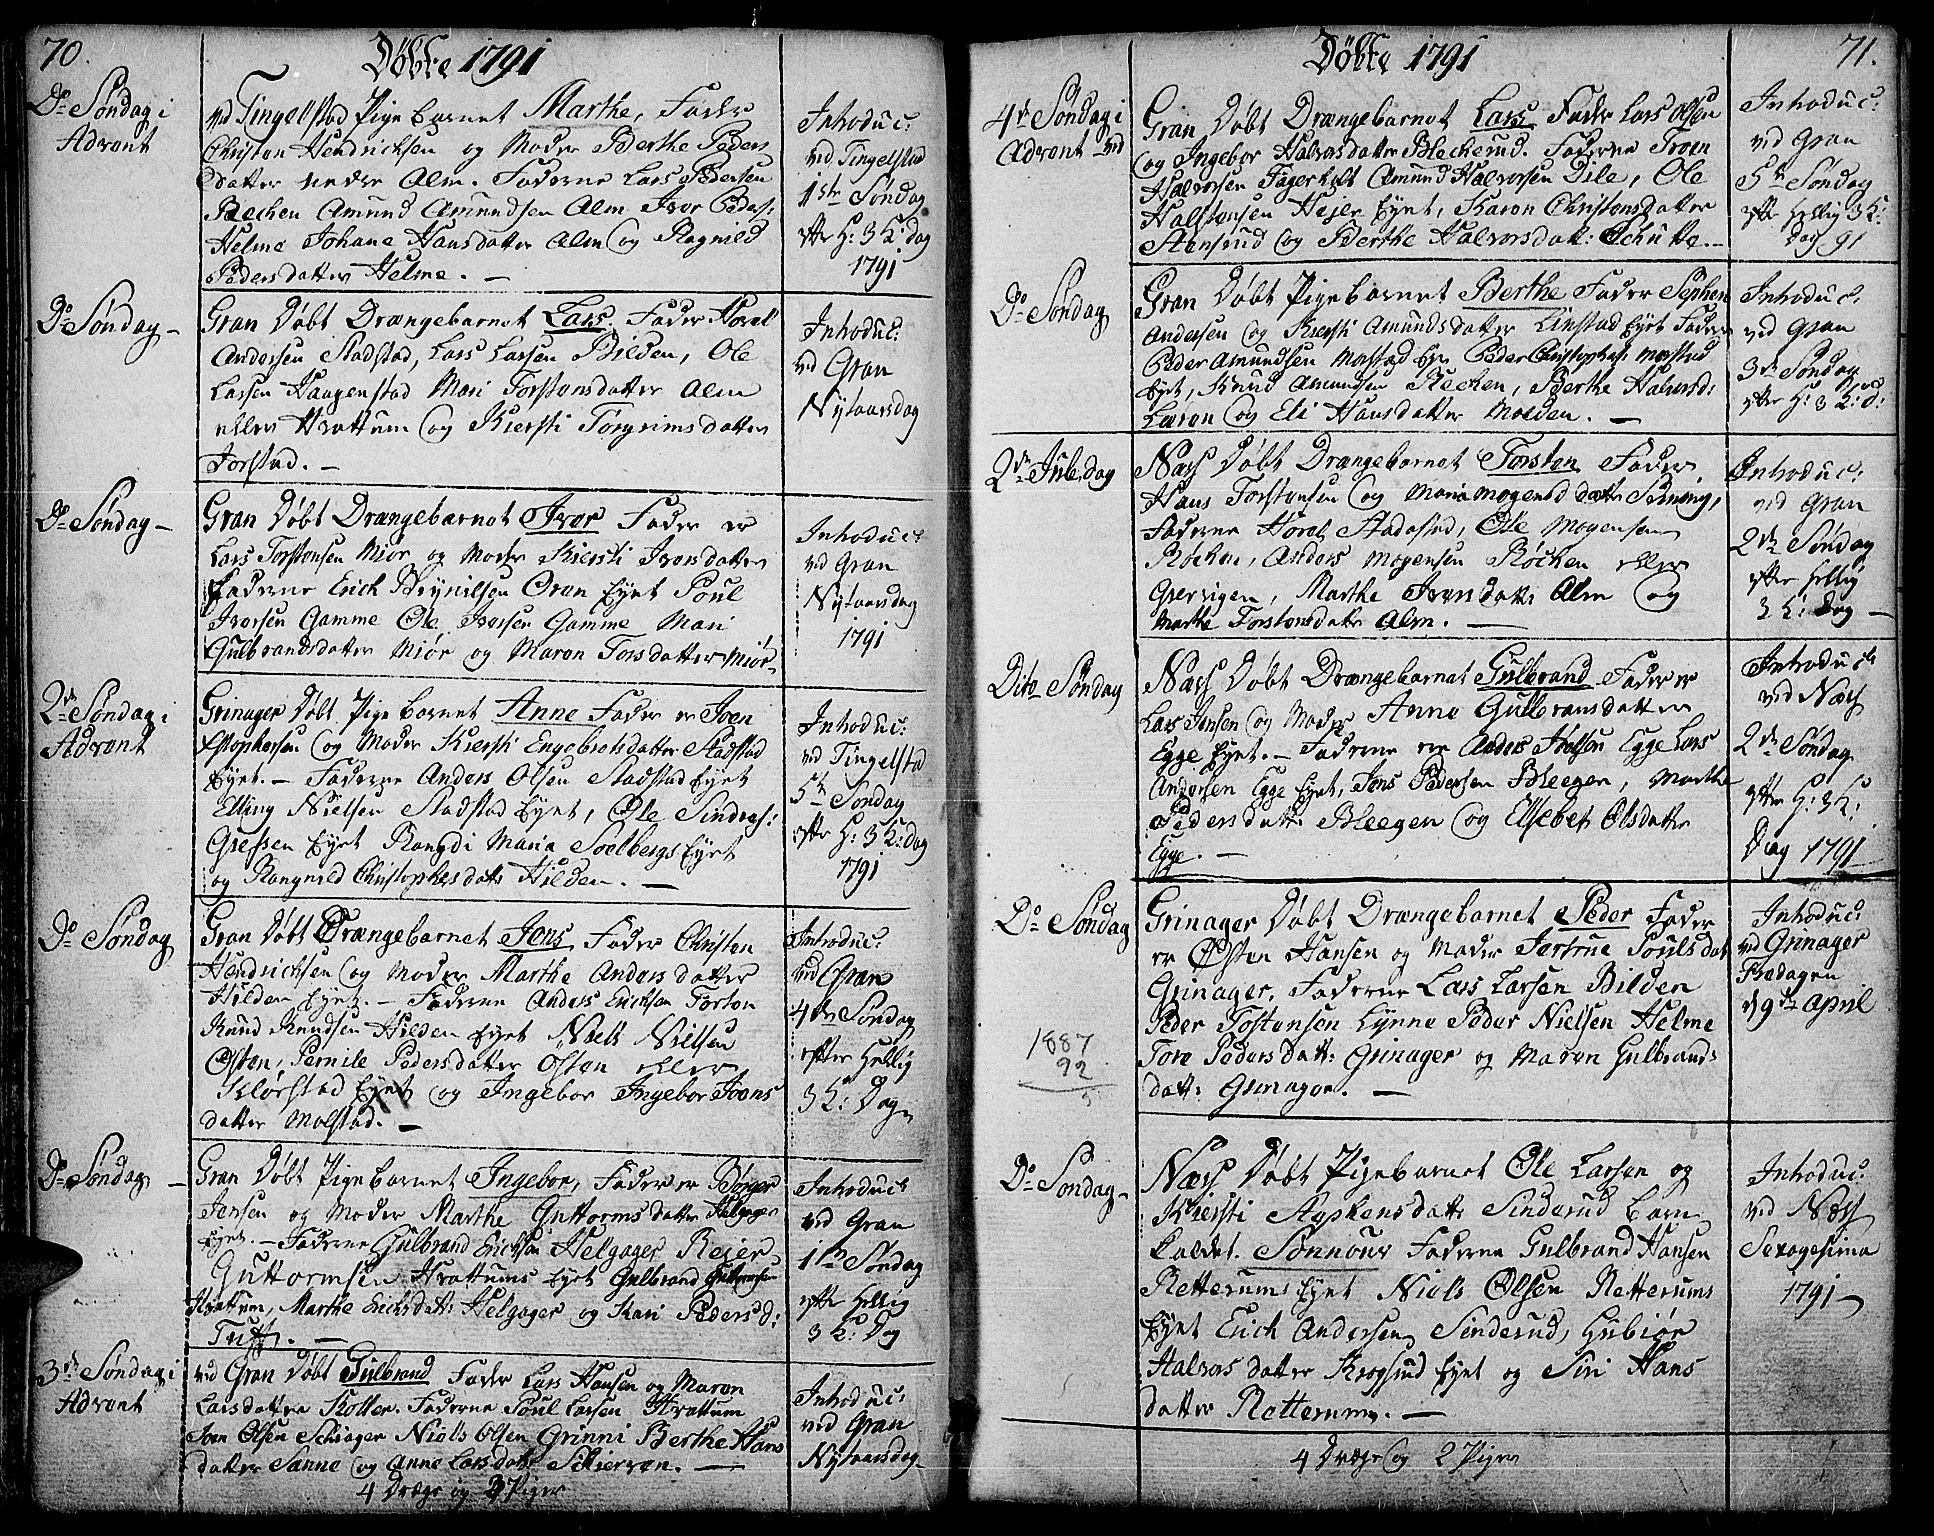 70.
Døbte 1791
Do Søndag i
Advent
ved Tingelstad Pige Barnet Marthe, Fader
Christen Hendrichsen og Moder Berthe Peders
datter nedre Alm. Faderne Lars Pedersen
Rechen Amund Amundsen Alm Iver Peders:
Helme Johane Hansdatter Alm og Ragnild
Pedersdatter Helme. –
Introduc:
ved Tingelstad
1ste Søndag
efter H: 3 K: dag
1791
Do Søndag –
Gran Døbt Drængebarnet Lars. Fader Hovel
Andersen Stadstad, Lars Larsen Bilden, Ole
Larsen Haagenstad Mari Torstensdatter Alm
eller Hvattum og Kiersti Torgrimsdatter
Jorstad. –
Introduc:
ved Gran
Nytaarsdag
Do Søndag –
Gran Døbt Drængebarnet Iver Fader er
Lars Torstensen Miør og Moder Kiersti Iversdatter
Faderne Erich Brynilsen Gran Eyet Poul
Iversen Gamme Ole Iversen Gamme Mari
Gulbrandsdatter Miør og Maren Torsdatter Miør
Introduc:
ved Gran
Nytaarsdag
1791
2de Søndag i
Advent
Grinager Døbt Pige Barnet Anne Fader er Joen
Estophersen og Moder Kiersti Engebretsdatter Stadstad
Eyet. – Faderne Anders Olsen Stadstad Eyet
Elling Nielsen Stadstad Eyet, Ole Sindres:
Gressen Eyet Rangdi Maria Soelbergs Eyet
og Rangnild Christophersdatt: Hilden. –
Introduc:
ved Tingelstad
5te Søndag
efter H: 3 K: Dag
1791
Do Søndag
Gran Døbt Drængebarnet Jens Fader Christen
Hendrichsen og Moder Marthe Andersdatter
Hilden Eyet. – Faderne Anders Erichsen Torton
Knud Knudsen Hilden Eyet Niels Nielsen
Østen, Pernile Pedersdatter Østen eller
Klørstad Eyet og Ingebor Ingebor Joens
datter Molstad. –
Introduc:
ved Gran
4de Søndag
efter Hellig
3 K: Dag
Do Søndag –
Gran Døbt Pige Barnet Ingebor, Fader er Børger
Jensen og Moder Marthe Guttormsdatter Helgager
Eyet. – Faderne Gulbrand Erichsen Helgager Reier
Guttormsen Hvattums Eyet Gulbrand Guttormsen
Hvattum, Marthe Erichsdatt: Helgager og Kari Pedersd:
Tuff. –
Introduc:
ved Gran
1ste Søndag
efter Hellig
3 K: Dag
3de Søndag i
Advent
ved Gran Døbt Gulbrand Fader Lars Hansen og Maren
Larsdatter Koller. Faderne Poul Larsen Hvattum
Joen Olsen Schiager Niels Olsen Grinni Berthe Hans
datter Sanne og Anne Larsdatt: Schierven. –
4 Dræge og 3 Piger
Introduc:
ved Gran
Nytaarsdag
71.
Døbte 1791
4de Søndag i
Advent ved
Gran Døbt Drængebarnet Lars Fader Lars Olsen
og Ingebor Halvorsdatter Blecherud. Faderne Troen
Halvorsen Fagerholt Amund Halvorsen Dile, Ole
Halstensen Eyet, Karen Christensdatter
Stensrud og Berthe Halvorsdatt: Schutte. –
Introduc:
ved Gran
5te Søndag
efter Hellig 3 K:
Dag 91
Do Søndag
Gran Døbt Pige Barnet Berthe Fader Stephen
Andersen og Kiersti Amundsdatter Linstad Eyet Fadere
Peder Amundsen Molstad Eye Peder Christophers: Molstad
Eyet, Knud Amundsen Rechen, Berthe Halvorsd:
Laron og Eli Hansdatter Molden. –
Introduc:
ved Gran
3de Søndag
efter H: 3 K: d:
2den Juledag
Næss Døbt Drængebarnet Torsten Fader
Hans Torstensen og Maria Mogensdatter
Faderne Hovel Stadstad, Ole Mogensen
Røchen, Anders Mogensen Røchen eller
Marthe Iversdatt: Alm og
Marthe Torstensdatter Alm. –
Introduc:
ved Gran
2de Søndag
efter Hellig
3 K: Dag –
Dito Søndag
Næss Døbt Drængebarnet Gulbrand Fader er
Lars Jensen og Moder Anne Gulbransdatter
Egge Eyet. – Faderne er Anders Egge Lars
Andersen Egge Eyet, Jens Pedersen Bleegen, Marthe
Pedersdatt: Bleegen og Elsebet Olsdatter
Egge. –
Introduc:
ved Næss
2de Søndag
efter H: 3 K:
Dag 1791
Do Søndag
Grinager Døbt Drængebarnet Peder Fader
er Østen Hansen og Moder Jertrue Poulsdat
Grinager. Faderne Lars Larsen Bilden
Peder Tostensen Lynne Peder Nielsen Helme
Tore Pedersdatt: Grinager og Maren Gulbrands:
datt: Grinager. –
Introduc:
ved Grinager
Fredagen
d 9de April
1887
92
5
Do Søndag –
Næss Døbt Pigebarnet Ole Larsen og
Kiersti Stephensdatt: Sinderud Barn
kaldet. Sønnøur Faderne Gulbrand Hansen
Retterums Eyet Niels Olsen Retterums
Eyet Erich Andersen Sinderud, Gubiør
Halvors datter Krogsrud Eyet og Siri Hans
datter Retterum. –
Introduc:
ved Næss
Sexagesima
1791
4 Dræge og 2 Piger